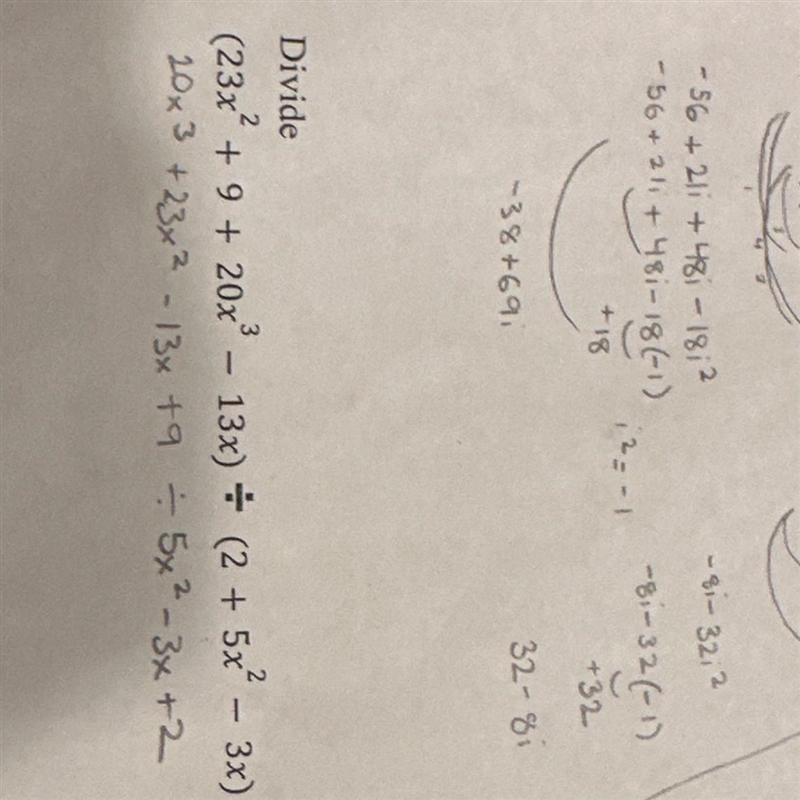 -56 + 21i + 48i - 18i²
-56 + 21i + 48i - 18(-1)
+18
-38 + 69i
i² = -1
-8i - 32i²
-8i - 32(-1)
+32
32 - 8i
Divide
(23x² + 9 + 20x³ − 13x) ÷ (2 + 5x² − 3x)
20x³ + 23x² - 13x + 9 ÷ 5x² - 3x + 2